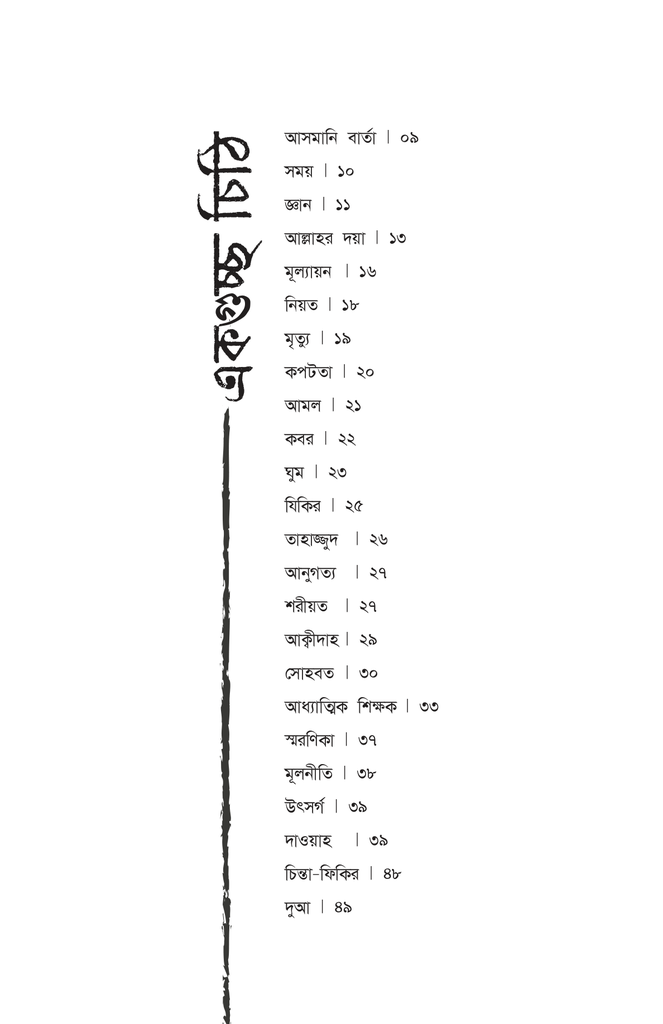 একগুচ্ছ চিঠি
আসমানি বার্তা | ০৯
সময় | ১০
জ্ঞান | ১১
আল্লাহর দয়া | ১৩
মূল্যায়ন | ১৬
নিয়ত | ১৮
মৃত্যু | ১৯
কপটতা | ২০
আমল | ২১
কবর | ২২
ঘুম | ২৩
যিকির | ২৫
তাহাজ্জুদ | ২৬
আনুগত্য | ২৭
শরীয়ত | ২৭
আক্বীদাহ | ২৯
সোহবত | ৩০
আধ্যাত্মিক শিক্ষক | ৩৩
স্মরণিকা | ৩৭
মূলনীতি | ৩৮
উৎসর্গ | ৩৯
দাওয়াহ | ৩৯
চিন্তা-ফিকির | ৪৮
দুআ | ৪৯